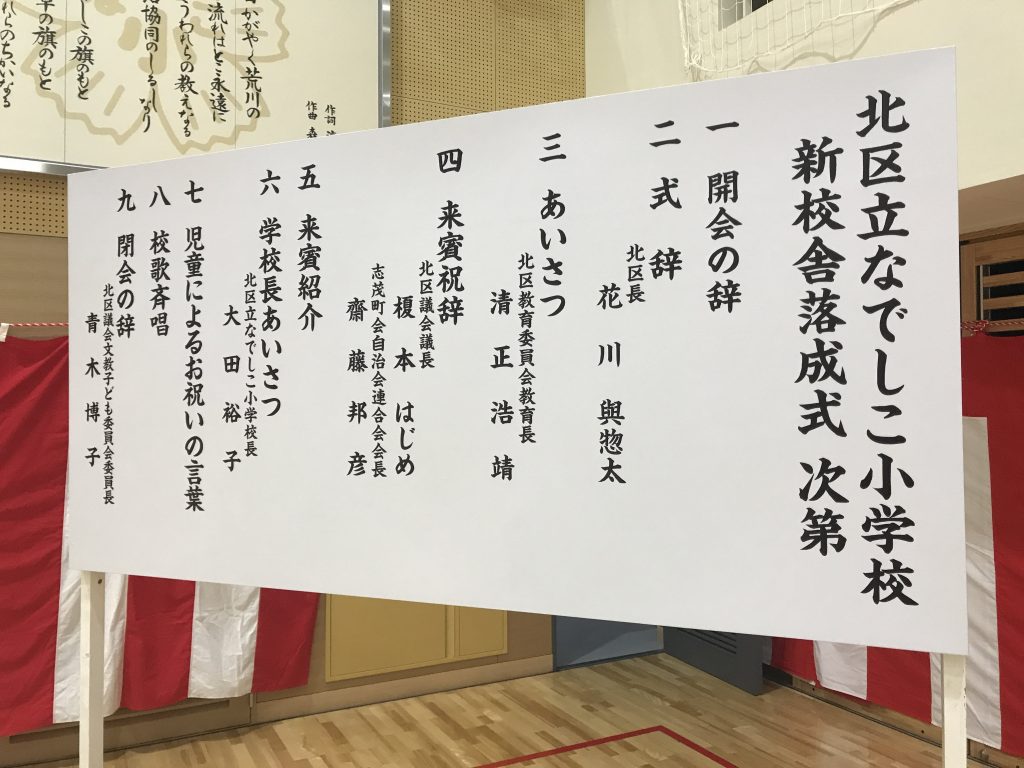 北区立なでしこ小学校
新校舎落成式 次第
一 開会の辞
二 式辞
北区長
花川 與惣太
三 あいさつ
北区教育委員会教育長
清正浩靖
四 来賓祝辞
北区議会議長
榎本はじめ
志茂町会自治会連合会会長
齋藤邦彦
五 来賓紹介
六 学校長あいさつ
北区立なでしこ小学校長
大田裕子
七 児童によるお祝いの言葉
八 校歌斉唱
九 閉会の辞
北区議会文教子ども委員会委員長
青木博子
作詞
作曲
かがやく荒川の
流れはとこ永遠に
うわれらの教えなる
協同のしるしなり
しこの旗のもと
の旗のもと
らのちかいなる